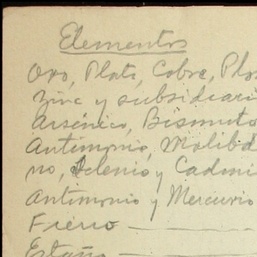 Elementos
Oro, Plata, Cobre, Plo
Zinc y subsidiari
Arsénico, Bismuto
Antimonio, Molibd
no, Selenio y Cadmi
Antimonio y Mercurio
Fierro
Estaño